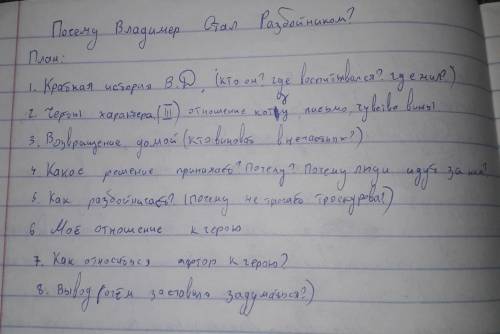 Почему Владимер Стал Разбойником?
План:
1. Краткая история В.Д. (кто он? где воспитывался? где жил?)
2. Черты характера, (III) отношение к отцу письмо, чувство вины
3. Возвращение домой (кто виноват в несчастьях?)
4. Какое решение принимает? Почему? Почему люди идут за ним?
5. Как разбойничает? (почему не трогает Троскурова?)
6 Моё отношение к герою
7. Как относиться афтор к герою?
8. Вывод (о чём заставила задуматься?)